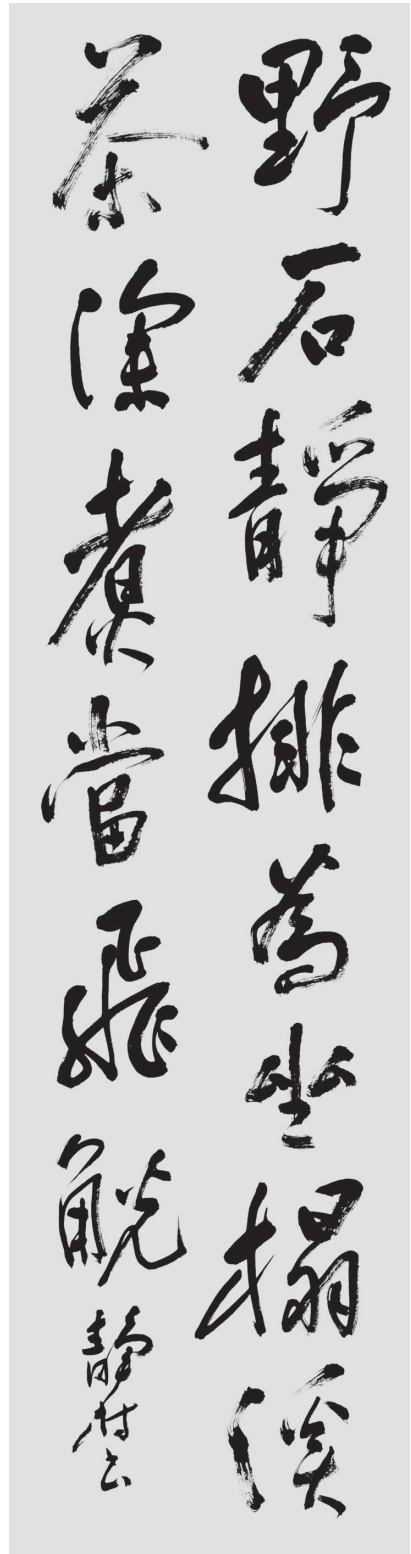 野石靜排為坐榻溪
茶深煮當飛觥
靜